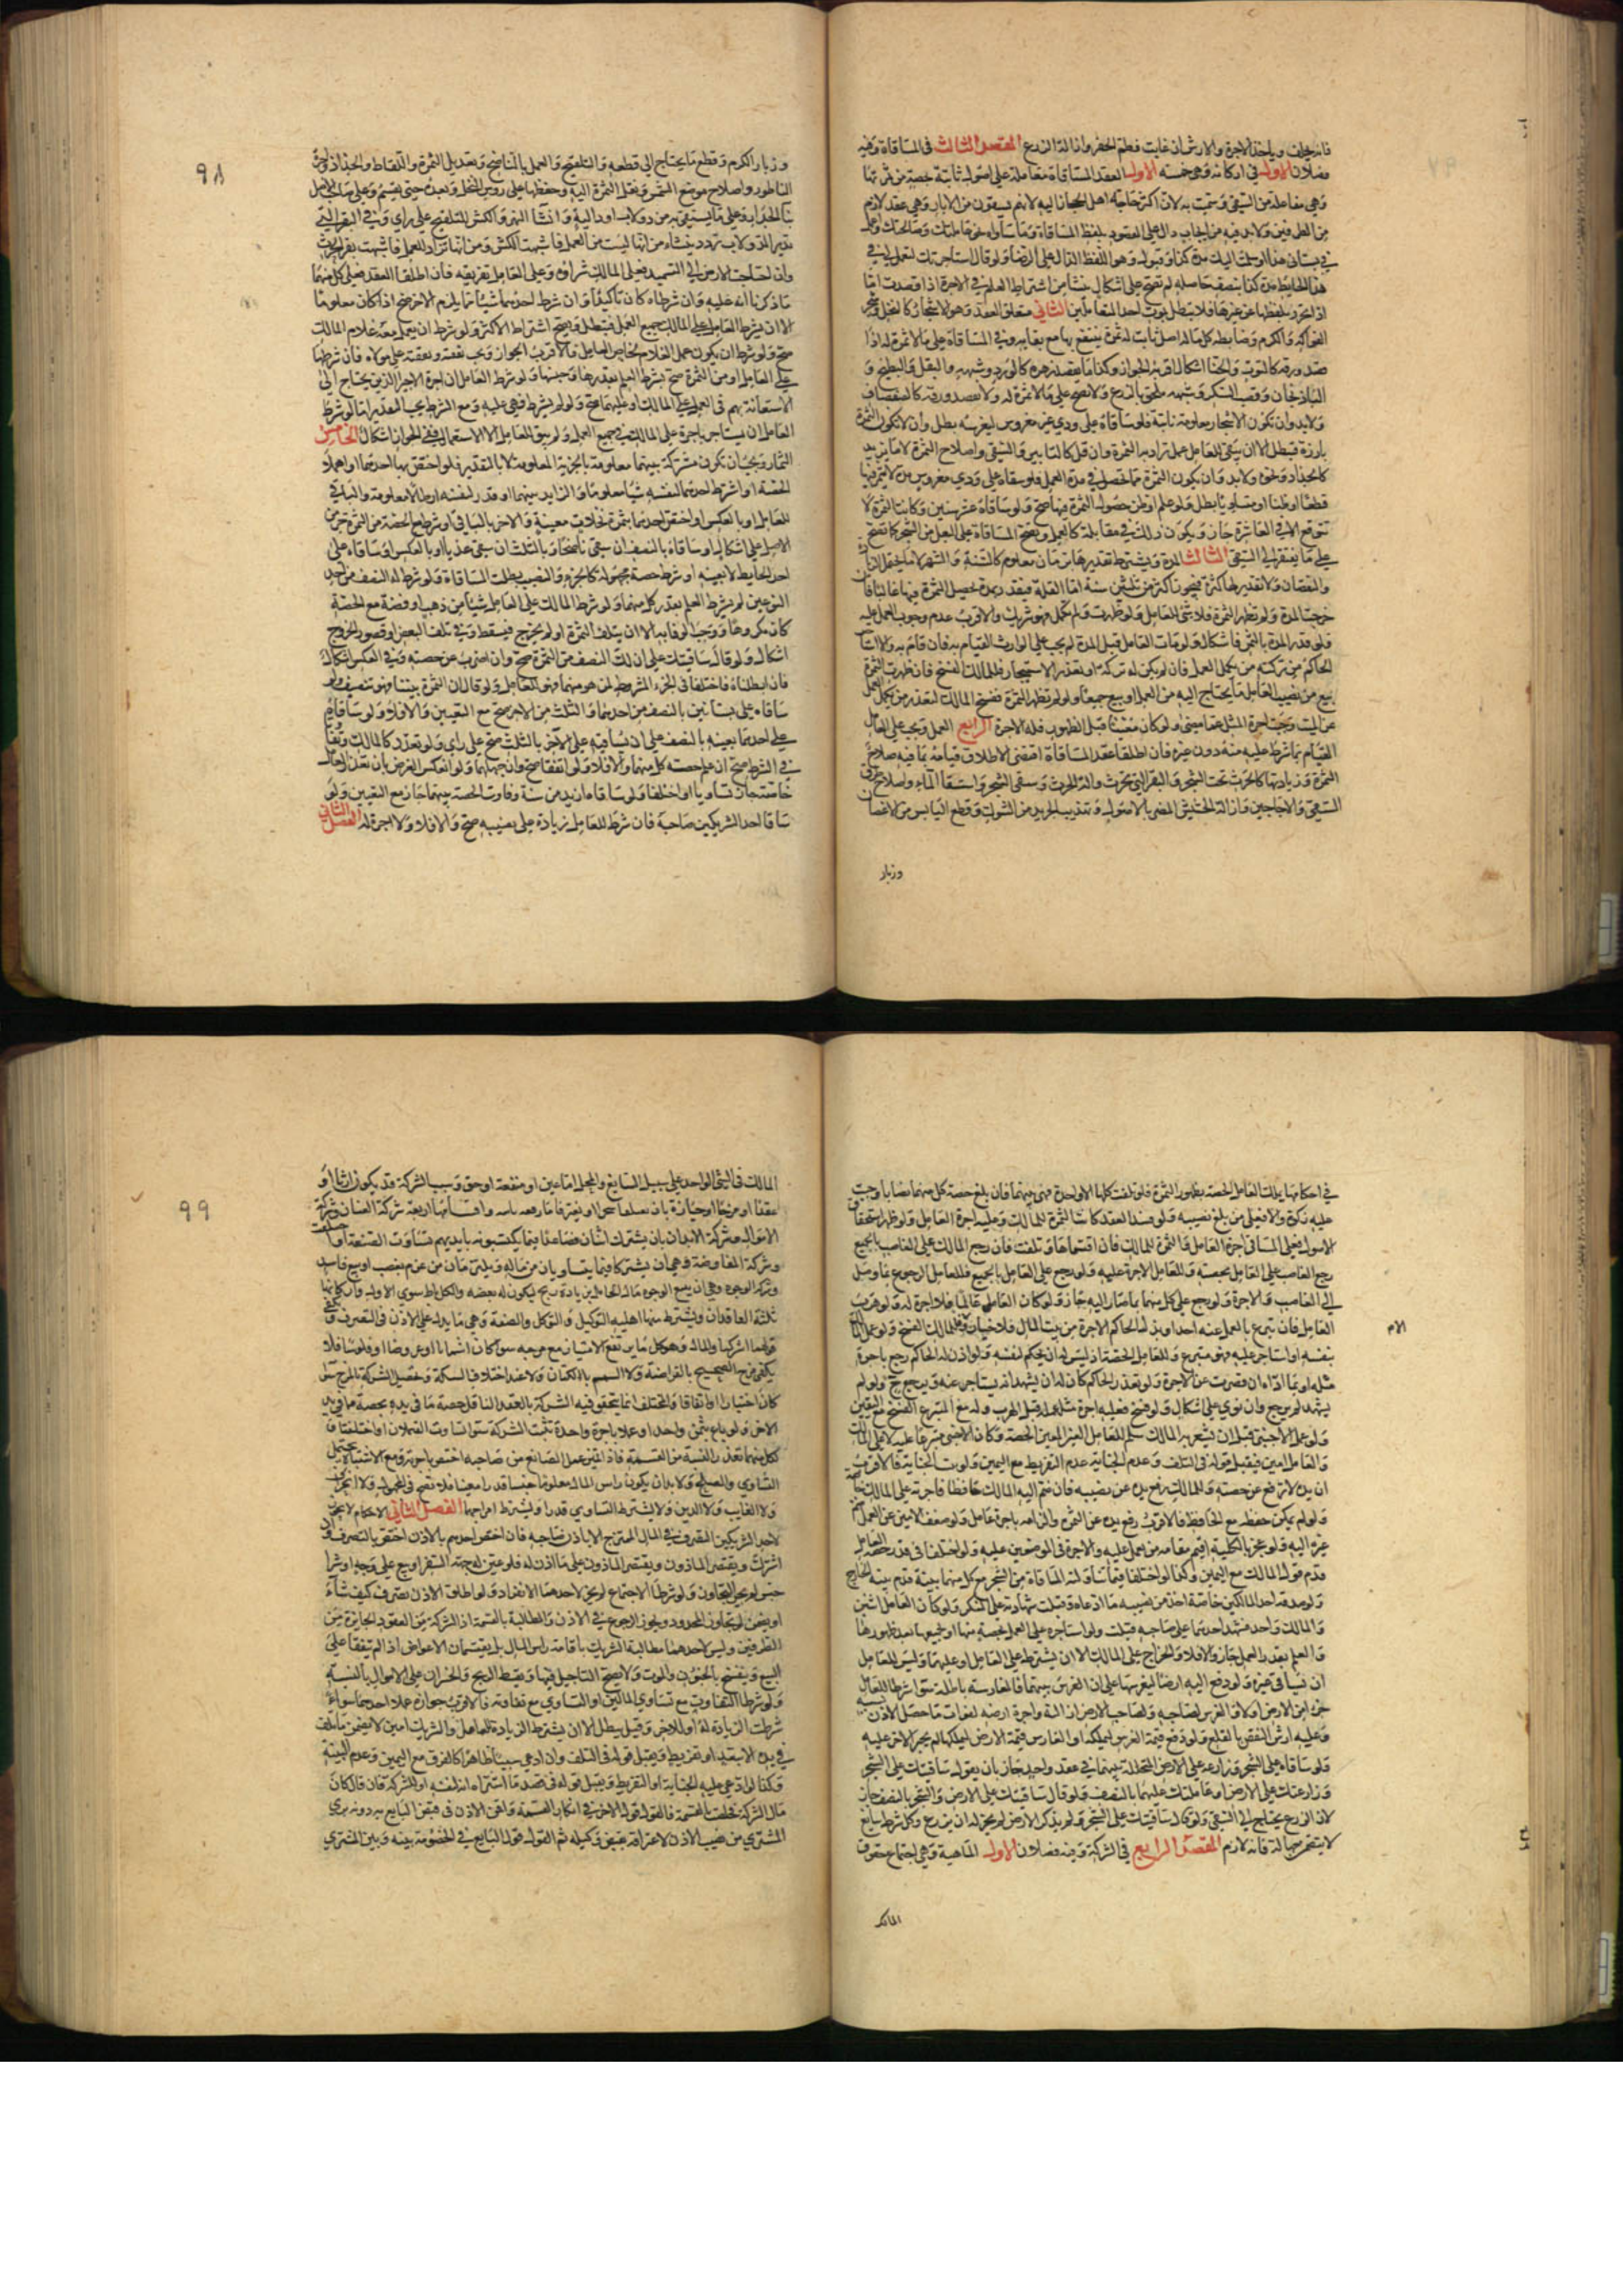 فانه يحلف وياخذ الاجرة والارش ان غابت وطم الحفر وازالة الزرع المقصد الثالث في المساقاة وفيه
فصلان الاول في اركانه وهي خمسة الاول العقد المساقاة معاملة على اصول ثابتة بحصة من ثمرتها
وهي مفاعلة من السقي وسميت به لان اكثر حاجة اهل الحجاز اليه لانهم يسقون من الابار وهي عقد لازم
من الطرفين ولابد فيه من ايجاب دال على المقصود بلفظ المساقاة وما ساواه نحو عاملتك وصالحتك واعمل
في بستاني هذا او سلمت اليك مدة كذا وقبول وهو اللفظ الدال على الرضا ولو قال استاجرتك لتعمل لي في
هذا الحايط مدة كذا بنصف حاصله لم تصح على اشكال ينشا من اشتراط العلم في الاجرة اذا قصدت اما
اذا تجوز بلفظها عن غيرها فلا تبطل بموت احد المتعاملين الثاني متعلق العقد وهو الاشجار كالنخل وشجر
الفواكه والكرم وضابطه كل ما له اصل ثابت له ثمرة ينتفع بها مع بقايه وفي المساقاة على ما لا ثمرة له اذا
قصد ورقه كالتوت والحنا اشكال اقربه الجواز وكذا ما يقصد زهره كالورد وشبهه والبقل والبطيخ و
الباذنجان وقصب السكر وشبهه ملحق بالزرع ولا تصح على ما لا ثمرة له ولا يقصد ورقه كالصفصاف
ولابد وان تكون الاشجار معلومة ثابتة فلو ساقاه على ودي غير مغروس ليغرسه بطل وان لا تكون الثمرة
بارزة فتبطل الا ان يبقى للعامل عمل تزاد به الثمرة وان قل كالتابير والسقي واصلاح الثمرة لا ما يزيد
كالجداد ونحوه ولابد وان يكون الثمرة مما تحصل في مدة العمل فلو ساقاه على ودي مغروس مدة لا يثمر فيها
قطعا او ظنا او متساويا بطل ولو علم او ظن حصول الثمرة فيها صح ولو ساقاه عشر سنين وكانت الثمرة لا
تتوقع الا في العاشرة جاز ويكون ذلك في مقابلة كل العمل وتصح المساقاة على البعل من الشجر كما تصح
على ما يفتقر الى السقي الثالث المدة ويشترط تقديرها بزمان معلوم كالسنة والشهر لا ما يحتمل الزيادة
والنقصان ولا تقدير لها كثرة فيجوز اكثر من ثلثين سنة اما القلة فيقدر بمدة تحصل الثمرة فيها غالبا فان
خرجت المدة ولم تظهر الثمرة فلا شي للعامل ولو ظهرت ولم تكمل فهو شريك والاقرب عدم وجوب العمل عليه
ولو قدر المدة بالثمرة فاشكال ولو مات العامل قبل المدة لم يجب على الوارث القيام به فان قام به والا استاجر
الحاكم من تركته من يكمل العمل فان لم يكن له تركة او تعذر الاستيجار فللمالك الفسخ فان ظهرت الثمرة
بيع من نصيب العامل ما يحتاج اليه من العمل او بيع جميعا ولو لم تظهر الثمرة ففسخ المالك لتعذر من يكمل العمل
عن الميت وجبت اجرة المثل عما مضى ولو كان معينا قبل الظهور فله الاجرة الرابع العمل ويجب على العامل
القيام بما شرط عليه منه دون غيره فان اطلقا عقد المساقاة اقتضى الاطلاق قيامه بما فيه صلاح
الثمرة وزيادتها كالحرث تحت الشجر والبقر التي تحرث والة الحرث وسقي الشجر واستقاء الماء واصلاح طرق
السقي والاجاجين وازالة الحشيش المضر بالاصول وتهذيب الجريد من الشوك وقطع اليابس من الاغصان
وزبار
٩٨
وزبار الكرم وقطع ما يحتاج الى قطعه والتلقيح والعمل بالناضح وتعديل الثمرة واللقاط والجداذ واجرة
الناطور واصلاح موضع التشميس ونقل الثمرة اليه وحفظها على رؤس النخل وبعده حتى يقسم وعلى صاحب الاصل
بنا الجدار وعلى ما يستقى به من دولاب او دالية وانشاء النهر والكش للتلقيح على راي وفي البقر التي
تدير الدولاب تردد ينشاء من انها ليست من العمل فاشبهت الكش ومن انها تراد للعمل فاشبهت بقر الحرث
وان احتاجت الارض الى التسميد فعلى المالك شراؤه وعلى العامل تفريقه فان اطلقا العقد فعلى كل منهما
ما ذكرنا انه عليه وان شرطاه كان تاكيدا وان شرط احدهما شيئا مما يلزم الاخر صح اذا كان معلوما
الا ان يشرط العامل على المالك جميع العمل فتبطل ويصح اشتراط الاكثر ولو شرط ان يعمل معه غلام المالك
صح ولو شرط ان يكون عمل الغلام لخاص العامل فالاقرب الجواز وتجب نفقته على مولاه فان شرطها
على العامل او من الثمرة صح بشرط العلم بقدرها وجنسها ولو شرط العامل ان اجرة الاجراء الذين يحتاج الى
الاستعانة بهم في العمل على المالك او عليهما صح ولو لم يشرط فهي عليه ومع الشرط يجب التقدير اما لو شرط
العامل ان يستاجر باجرة على المالك في جميع العمل ولم يبق للعامل الا الاستعمال ففي الجواز اشكال الخامس
الثمار ويجب ان تكون مشتركة بينهما معلومة بالجزئية المعلومة لا بالتقدير فلو اختص بها احدهما او اهملا
الحصة او اشترط احدهما لنفسه شيا معلوما والزايد بينهما او قدر لنفسه ارطالا معلومة والباقي
للعامل او بالعكس او اختص احدهما بثمرة نخلات معينة والاخر بالباقي او شرط مع الحصة من الثمرة جزء من
الاصل على اشكال او ساقاه بالنصف ان سقى ناضحا وبالثلث ان سقى عذيا او بالعكس او ساقاه على
احد الحايط لا بعينه او شرط حصة مجهولة كالجزء والنصيب بطلت المساقاة ولو شرط له النصف من احد
النوعين لم يشرط العلم بقدر كل منهما ولو شرط المالك على العامل شيئا من ذهب او فضة مع الحصة
كان مكروها ووجب الوفا به الا ان يتلف الثمرة او لم يخرج فيسقط وفي تلف البعض او قصور الخروج
اشكال ولو قال ساقيتك على ان لك النصف من الثمرة صح وان اضرب عن حصته وفي العكس اشكال
فان ابطلناه فاختلفا في الجزء المشروط لمن هو منهما فهو للعامل ولو قال ان الثمرة بيننا فهو تنصيف ولو
ساقاه على بستانين بالنصف من احدهما والثلث من الاخر صح مع التعيين والا فلا ولو ساقاه
على احدهما بعينه بالنصف على ان يساقيه على الاخر بالثلث صح على راي ولو تعدد المالك وتفاوتا
في الشرط صح ان علم حصة كل منهما والا فلا ولو اتفقا صح وان جهلهما ولو انعكس الفرض بان تعدد العامل
خاصة جاز تساويا او اختلفا ولو ساقاه ازيد من سنة وفاوت الحصة بينهما جاز مع التعيين ولو
ساقا احد الشريكين صاحبه فان شرط للعامل زيادة على نصيبه صح والا فلا ولا اجرة له الفصل الثاني
في احكامها يملك العامل الحصة بظهور الثمرة فلو تلفت كلها الا واحدة فهي بينهما فان بلغ حصة كل منهما نصابا وجبت
عليه زكوة والا فعلى من بلغ نصيبه ولو فسد العقد كانت الثمرة للمالك وعليه اجرة العامل ولو ظهر استحقاق
الاصول فعلى المساقي اجرة العامل والثمرة للمالك فان اقتسماها وتلفت فان رجع المالك على الغاصب بالجميع
رجع الغاصب على العامل بحصته وللعامل الاجرة عليه ولو رجع على العامل بالجميع فللعامل الرجوع بما وصل
الى الغاصب والاجرة ولو رجع على كل منهما بما صار اليه جاز ولو كان العامل عالما فلا اجرة له ولو هرب
العامل فان تبرع بالعمل عنه احد او بذل الحاكم الاجرة من بيت المال فلا خيار والا فللمالك الفسخ ولو عمل المالك
بنفسه او استاجر عليه فهو متبرع وللعامل الحصة اذ ليس له ان يحكم لنفسه ولو اذن له الحاكم رجع باجرة
مثله او بما اداه ان قصرت عن الاجرة ولو تعذر الحاكم كان له ان يشهد انه يستاجر عنه ويرجع ح ولو لم
يشهد لم يرجع وان نوى على اشكال ولو فسخ فعليه اجرة مثل عمله قبل الهرب وله مع المتبرع الفسخ مع التعيين
ولو عمل الاجنبي قبل ان يشعر به المالك سلم للعامل الغير المعين الحصة وكان الاجنبي متبرعا عليه لا على المالك
والعامل امين فيقبل قوله في التلف وعدم الجناية وعدم التفريط مع اليمين ولو ثبت الجناية فالاقرب
ان يده لا ترفع عن حصته وللمالك رفع يده عن نصيبه فان ضم اليه المالك حافظا فاجرته على المالك خاصة
ولو لم يمكن حفظه مع الحافظ فالاقرب رفع يده عن الثمرة والزامه باجرة عامل ولو ضعف الامين عن العمل ضم
غيره اليه ولو عجز بالكلية اقيم مقامه من يعمل عليه والاجرة في الموضعين عليه ولو اختلفا في قدر حصة العامل
قدم قول المالك مع اليمين وكذا لو اختلفا فيما تناولته المساقاة من الشجر ومع كل منهما بينة قدم بينة الخارج
ولو صدقه احد المالكين خاصة اخذ من نصيبه ما ادعاه وقبلت شهادته على المنكر ولو كان العامل اثنين
والمالك واحد فشهد احدهما على صاحبه قبلت ولو استاجره على العمل بحصة منها او بجميعها بعد ظهورها
والعلم بقدر العمل جاز والا فلا والخراج على المالك الا ان يشترط على العامل او عليهما وليس للعامل
ان يساقي غيره ولو دفع اليه ارضا ليغرسها على ان الغرس بينهما فالمغارسة باطلة سواء شرطا للعامل
جزء من الارض او لا والغرس لصاحبه ولصاحب الارض ازالته واجرة ارضه لفوات ما حصل الاذن بسببه
وعليه ارش النقص بالقلع ولو دفع قيمة الغرس ليملكه او الغارس قيمة الارض ليملكها لم يجبر الاخر عليه
ولو ساقاه على الشجر وزارعه على الارض المتخللة بينهما في عقد واحد جاز بان يقول ساقيتك على الشجر
وزارعتك على الارض او عاملتك عليهما بالنصف ولو قال ساقيتك على الارض والشجر بالنصف جاز
لان الزرع يحتاج الى السقي ولو قال ساقيتك على الشجر ولم يذكر الارض لم يجز له ان يزرع وكل شرط سايغ
لا يتضمن جهالة فانه لازم المقصد الرابع في الشركة وفيه فصلان الاول الماهية وهي اجتماع حقوق
المالك
٩٩
الملاك في الشي الواحد على سبيل الشياع والمحل اما عين او منفعة او حق وسبب الشركة قد يكون ارثا او
عقدا او مزجا او حيازة بان يقتلعا شجرا او يغترفا ماء دفعة باسه واقسامها اربعة شركة العنان وشركة
الاموال وشركة الابدان بان يشترك اثنان فصاعدا فيما يكتسبونه بايديهم تساوت الصنعة او اختلفت
وشركة المفاوضة وهي ان يشتركا فيما يتساويان من مال ويلتزمان من غرم بغصب او بيع فاسد
وشركة الوجوه وهي ان يبيع الوجيه مال الخامل بزيادة ربح ليكون له بعضه والكل باطل سوى الاول واركانها
ثلثة العاقدان ويشترط فيهما اهلية التوكيل والتوكل والصيغة وهي ما يدل على الاذن في التصرف ويكفي
قولهما اشتركنا والمال وهو كل ما يرتفع الامتياز مع مزجه سوا كان اثمانا او عروضا او فلوسا فلا
يكفي مزج الصحيح بالقراضة ولا السمسم بالكتان ولا عند اختلاف السكة وتحصل الشركة بالمزج سواء
كان اختيارا او اتفاقا والمختلف انما يتحقق فيه الشركة بالعقد الناقل حصة ما في يده بحصة ما في يد
الاخر ولو باعا بثمن واحد او عملا باجرة واحدة ثبتت الشركة سوا تساوت القيمتان او اختلفتا و
لكل منهما بقدر النسبة من القيمة فاذا تميز عمل الصانع من صاحبه اختص باجرته ومع الاشتباه يحتمل
التساوي والصلح ولابد ان يكون راس المال معلوما جنسا وقدرا معينا فلا تصح في المجهول ولا الجزاف
ولا الغايب ولا الدين ولا يشترط التساوي قدرا ويشترط امتزاجهما الفصل الثاني الاحكام لا يجوز
لاحد الشريكين التصرف في المال الممتزج الا باذن صاحبه فان اختص احدهم بالاذن اختص بالتصرف وان
اشترك ويقتصر الماذون على ما اذن له فلو عين له جهة السفر او بيع على وجه او شرا
جنس لم يجز التجاوز ولو شرطا الاجتماع لم يجز لاحدهما الانفراد ولو اطلق الاذن تصرف كيف شاء
ويضمن لو تجاوز المحدود ويجوز الرجوع في الاذن والمطالبة بالقسمة اذ الشركة من العقود الجايزة من
الطرفين وليس لاحدهما مطالبة الشريك باقامة راس المال بل يقتسمان الاعواض اذا لم يتفقا على
البيع وينفسخ بالجنون والموت ولا يصح التاجيل فيها ويقسط الربح والخسران على الاموال بالنسبة
ولو شرطا التفاوت مع تساوي المالين او التساوي مع تفاوته فالاقرب جوازه ان عملا او احدهما سواء
شرطت الزيادة له او للاخر وقيل يبطل الا ان يشترط الزيادة للعامل والشريك امين لا يضمن ما تلف
في يده الا بتعد او تفريط ويقبل قوله في التلف وان ادعى سببا ظاهرا كالغرق مع اليمين وعدم البينة
وكذا لو ادعى عليه الجناية او التفريط ويقبل قوله في قصد ما اشتراه انه لنفسه او للشركة فان قال كان
مال الشركة فخلصت بالقسمة فالقول قول الاخر في انكار القسمة ولو اقر الاذن في قبض البايع به دونه بري
المشتري من نصيب الاذن لاعترافه بقبض وكيله ثم القول قول البايع في الخصومة بينه وبين المشتري